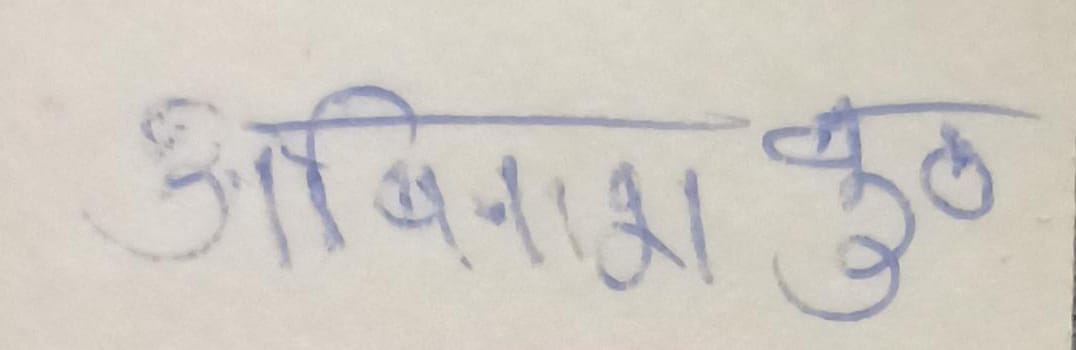 अबिनाश कु०